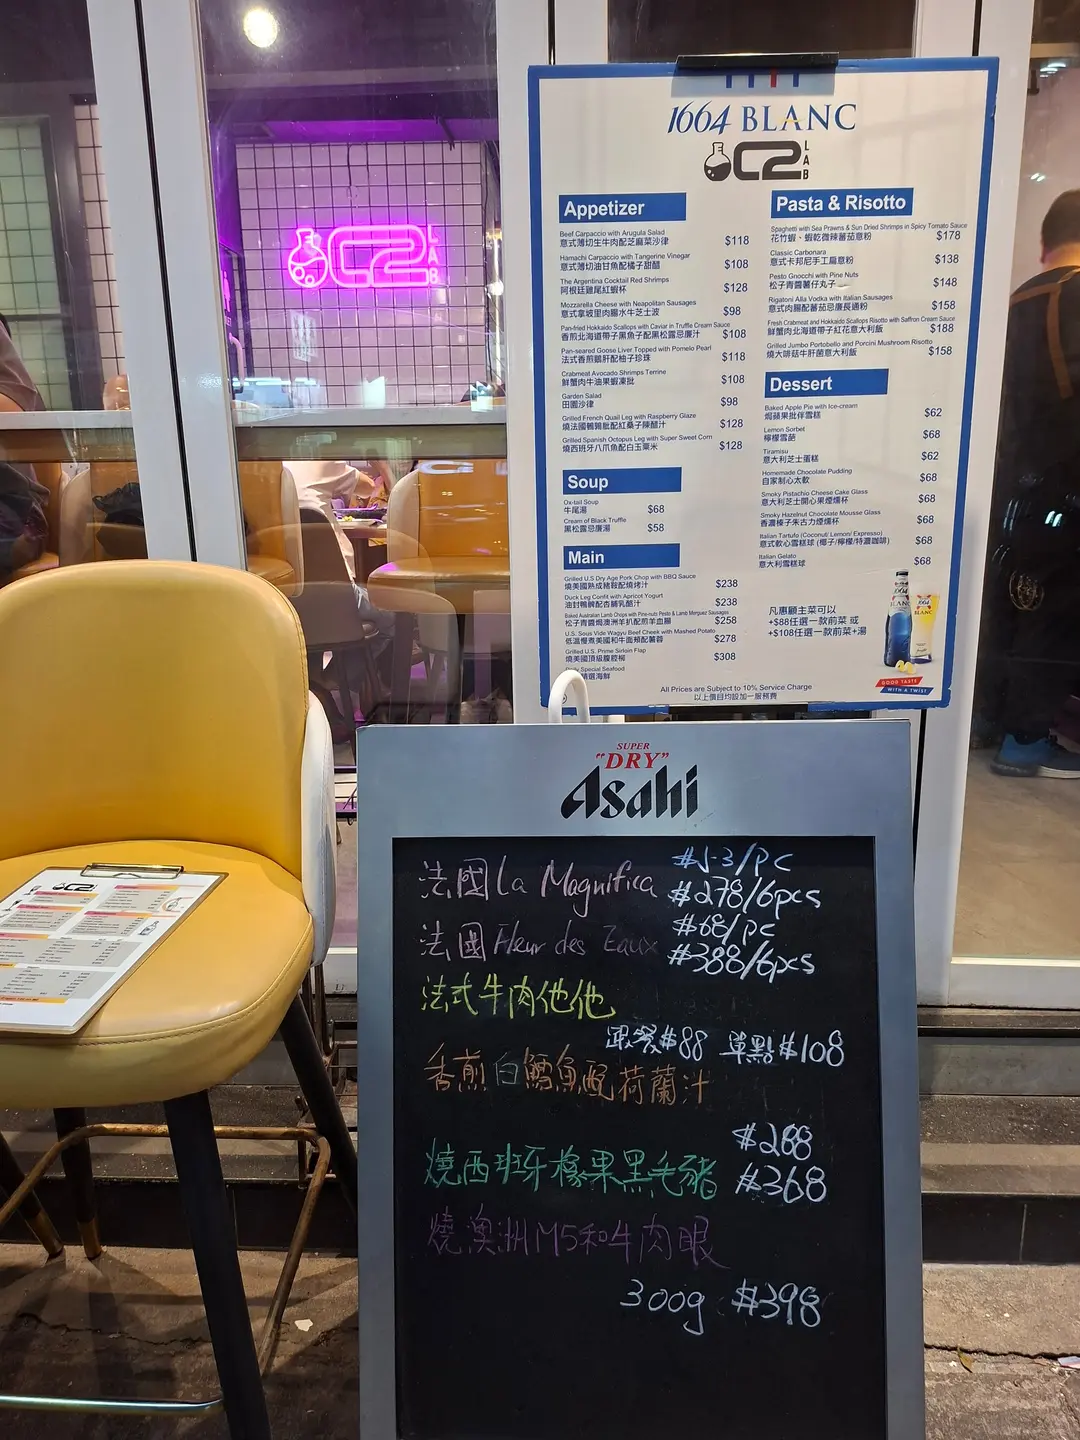 1664 BLANC
C2 LAB
Appetizer
Beef Carpaccio with Arugula Salad
意式薄切生牛肉配芝麻菜沙律 $118
Hamachi Carpaccio with Tangerine Vinegar
意式薄切油甘魚配橘子甜醋 $108
The Argentina Cocktail Red Shrimps
阿根廷雞尾紅蝦杯 $128
Mozzarella Cheese with Neapolitan Sausages
意式拿坡里肉腸水牛芝士波 $98
Pan-fried Hokkaido Scallops with Caviar in Truffle Cream Sauce
香煎北海道帶子黑魚子配黑松露忌廉汁 $108
Pan-seared Goose Liver Topped with Pomelo Pearl
法式香煎鵝肝配柚子珍珠 $118
Crabmeat Avocado Shrimps Terrine
鮮蟹肉牛油果蝦凍批 $108
Garden Salad
田園沙律 $98
Grilled French Quail Leg with Raspberry Glaze
燒法國鵪鶉髀配紅桑子陳醋汁 $128
Grilled Spanish Octopus Leg with Super Sweet Corn
燒西班牙八爪魚配白玉粟米 $128
Soup
Ox-tail Soup
牛尾湯 $68
Cream of Black Truffle
黑松露忌廉湯 $58
Main
Grilled U.S Dry Age Pork Chop with BBQ Sauce
燒美國熟成豬鞍配燒烤汁 $238
Duck Leg Confit with Apricot Yogurt
油封鴨髀配杏脯乳酪汁 $238
Baked Australian Lamb Chops with Pine-nuts Pesto & Lamb Merguez Sausages
松子青醬焗澳洲羊扒配煎羊血腸 $258
U.S. Sous Vide Wagyu Beef Cheek with Mashed Potato
低溫慢煮美國和牛面頰配薯蓉 $278
Grilled U.S. Prime Sirloin Flap
燒美國頂級腹腔柳 $308
Special Seafood
精選海鮮
Pasta & Risotto
Spaghetti with Sea Prawns & Sun Dried Shrimps in Spicy Tomato Sauce
花竹蝦、蝦乾微辣蕃茄意粉 $178
Classic Carbonara
意式卡邦尼手工扁意粉 $138
Pesto Gnocchi with Pine Nuts
松子青醬薯仔丸子 $148
Rigatoni Alla Vodka with Italian Sausages
意式肉腸配蕃茄忌廉長通粉 $158
Fresh Crabmeat and Hokkaido Scallops Risotto with Saffron Cream Sauce
鮮蟹肉北海道帶子紅花意大利飯 $188
Grilled Jumbo Portobello and Porcini Mushroom Risotto
燒大啡菇牛肝菌意大利飯 $158
Dessert
Baked Apple Pie with Ice-cream
焗蘋果批伴雪糕 $62
Lemon Sorbet
檸檬雪葩 $68
Tiramisu
意大利芝士蛋糕 $62
Homemade Chocolate Pudding
自家制心太軟 $68
Smoky Pistachio Cheese Cake Glass
意大利芝士開心果煙燻杯 $68
Smoky Hazelnut Chocolate Mousse Glass
香濃榛子朱古力煙燻杯 $68
Italian Tartufo (Coconut/ Lemon/ Expresso)
意式軟心雪糕球 (椰子/檸檬/特濃咖啡) $68
Italian Gelato
意大利雪糕球 $68
凡惠顧主菜可以
+$88任選一款前菜 或
+$108任選一款前菜+湯
1664
BLANC
GOOD TASTE
WITH A TWIST
All Prices are Subject to 10% Service Charge
以上價目均設加一服務費
C2 LAB
SUPER
"DRY"
Asahi
法國 La Magnifica $53/pc
$278/6pcs
法國 Fleur des Eaux $68/pc
$388/6pcs
法式牛肉他他
跟餐$88 單點$108
香煎白鱈魚配荷蘭汁
$288
燒西班牙橡果黑毛豬 $368
燒澳洲M5和牛肉眼
300g $398
C2